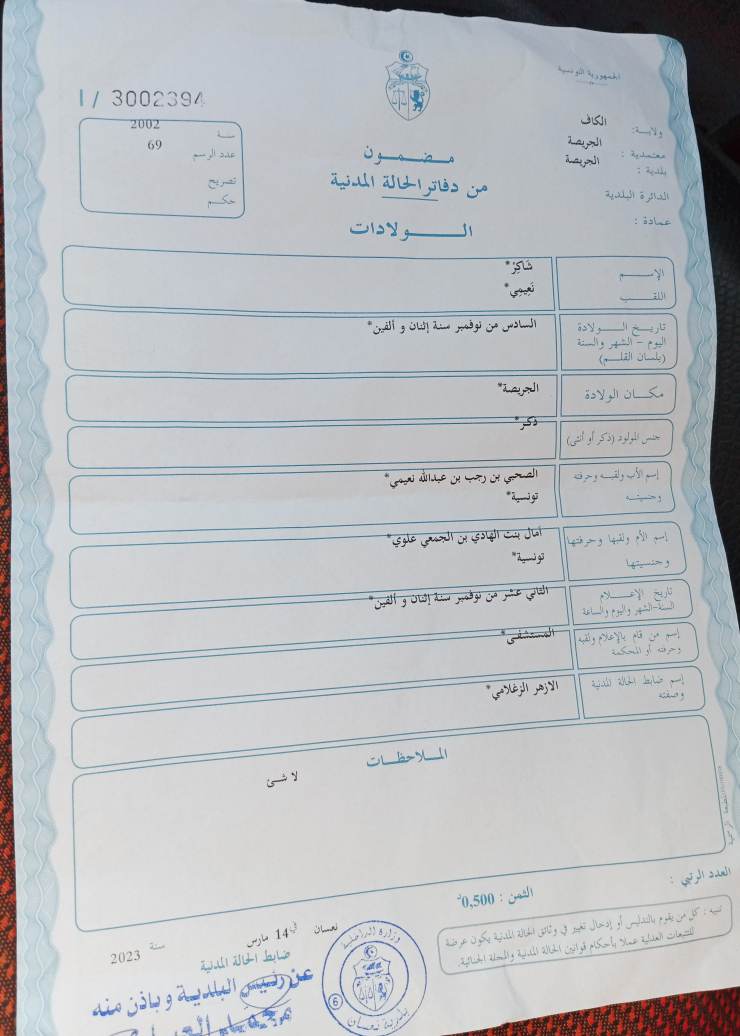 الجمهورية التونسية
1 / 3002394
ولاية: الكاف
معتمدية : الجريصة
بلدية : الجريصة
الدائرة البلدية
عمادة :
سنة 2002
عدد الرسم 69
تصريح
حكم
مضمون
من دفاتر الحالة المدنية
الولادات
الإسم شاكر*
اللقب نعيمي*
تاريخ الولادة
اليوم - الشهر والسنة
(بلسان القلم)
السادس من نوفمبر سنة إثنان و ألفين*
مكان الولادة الجريصة*
جنس المولود (ذكر أو أنثى) ذكر*
إسم الأب ولقبه وحرفته
وجنسيته
الصحبي بن رجب بن عبدالله نعيمي*
تونسية*
إسم الأم ولقبها وحرفتها
وجنسيتها
أمال بنت الهادي بن الجمعي علوي*
تونسية*
تاريخ الإعلام
السنة-الشهر واليوم والساعة
الثاني عشر من نوفمبر سنة إثنان و ألفين*
إسم من قام بالإعلام ولقبه
وحرفته أو المحكمة
المستشفى*
إسم ضابط الحالة المدنية
وصفته
الازهر الزغلامي*
الملاحظات
لا شئ
العدد الرتبي :
الثمن : 0,500د
تنبيه : كل من يقوم بالتدليس أو إدخال تغيير في وثائق الحالة المدنية يكون عرضة
للتتبعات العدلية عملا بأحكام قوانين الحالة المدنية والمجلة الجنائية.
نعسان في 14 مارس سنة 2023
ضابط الحالة المدنية
عن رئيس البلدية وبإذن منه
وزارة الداخلية
بلدية نعسان
6